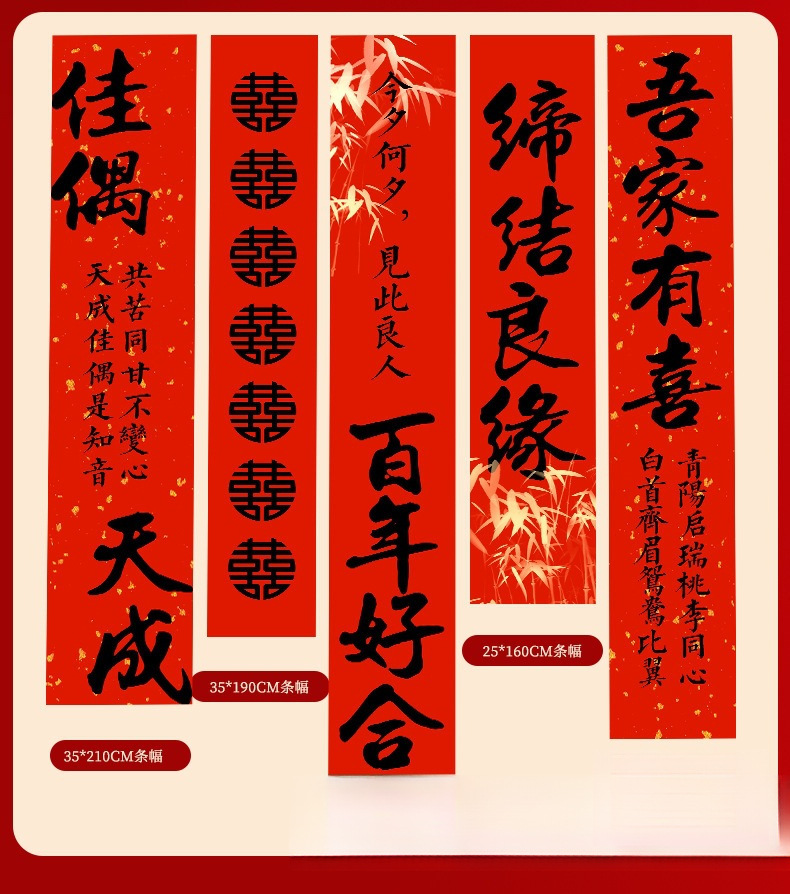 佳偶
共苦同甘不變心
天成佳偶是知音
天成
35*210CM条幅
囍
囍
囍
囍
囍
囍
囍
35*190CM条幅
今夕何夕，見此良人
百年好合
缔结良缘
25*160CM条幅
吾家有喜
青陽启瑞桃李同心
白首齊眉鴛鴦比翼